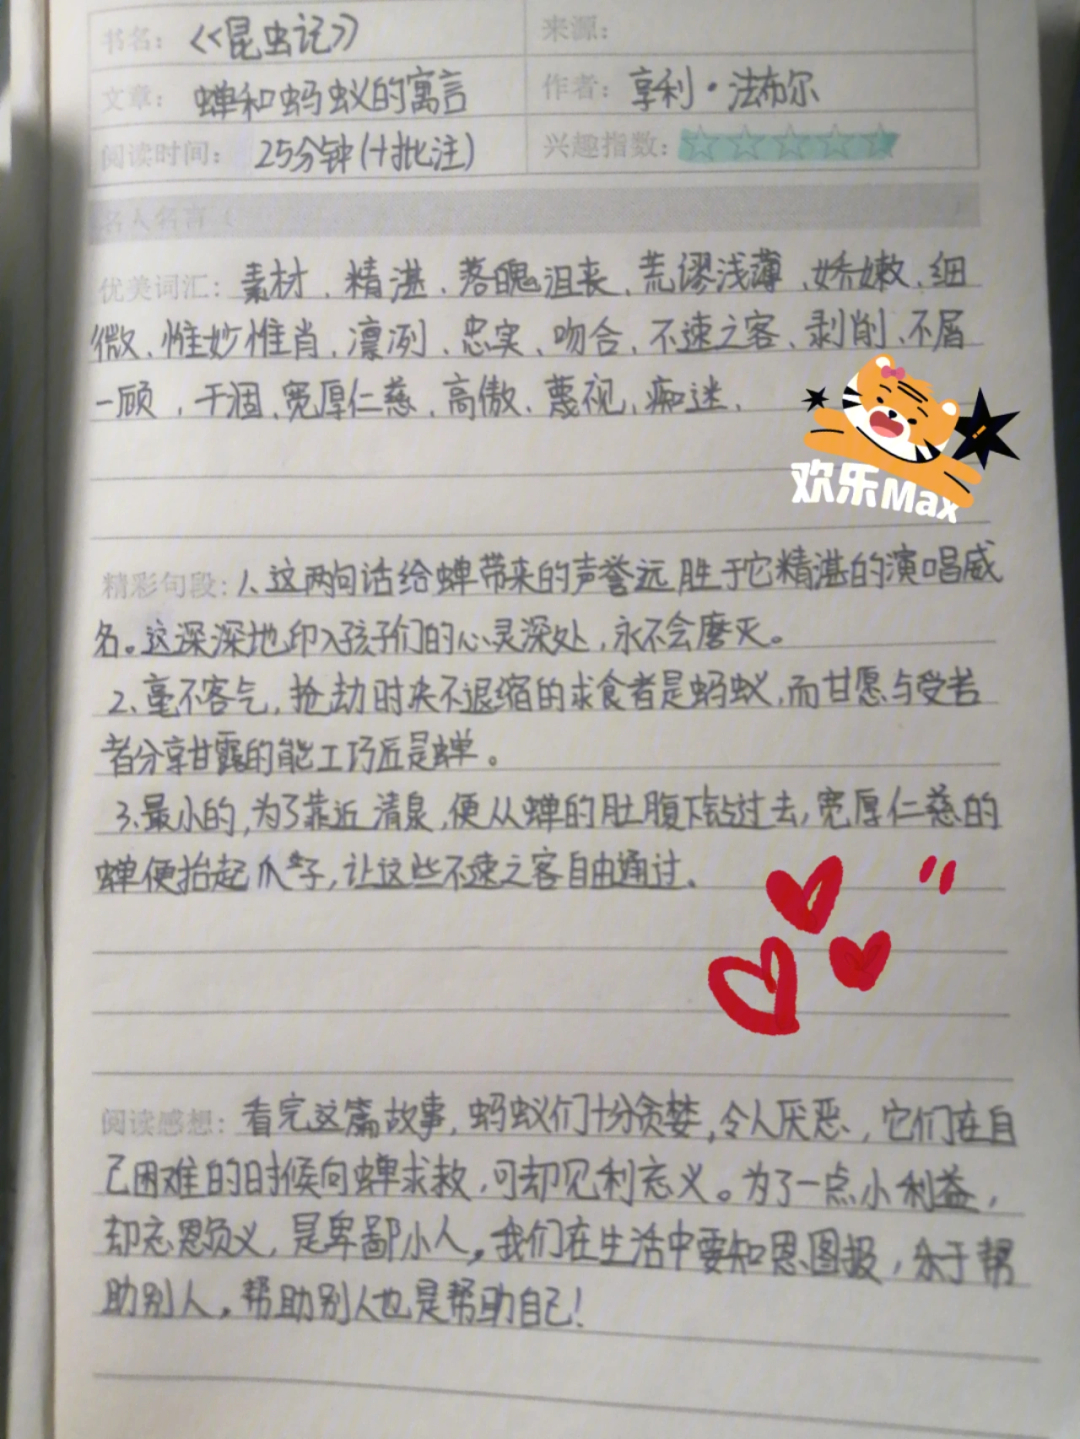 书名：《昆虫记》 来源：
文章：蝉和蚂蚁的寓言 作者：亨利·法布尔
阅读时间：25分钟(+批注) 兴趣指数：
名人名言
优美词汇：素材、精湛、落魄沮丧、荒谬浅薄、娇嫩、细
微、惟妙惟肖、凛冽、忠实、吻合、不速之客、剥削、不屑
一顾、干涸、宽厚仁慈、高傲、蔑视、痴迷、
欢乐Max
精彩句段：1、这两句话给蝉带来的声誉远胜于它精湛的演唱威
名。这深深地印入孩子们的心灵深处，永不会磨灭。
2、毫不客气，抢劫时决不退缩的求食者是蚂蚁，而甘愿与受苦
者分享甘露的能工巧匠是蝉。
3、最小的，为了靠近清泉，便从蝉的肚腹下钻过去，宽厚仁慈的
蝉便抬起爪子，让这些不速之客自由通过。
阅读感想：看完这篇故事，蚂蚁们十分贪婪，令人厌恶，它们在自
己困难的时候向蝉求救，可却见利忘义。为了一点小利益，
却忘恩负义，是卑鄙小人。我们在生活中要知恩图报，乐于帮
助别人。帮助别人也是帮助自己！